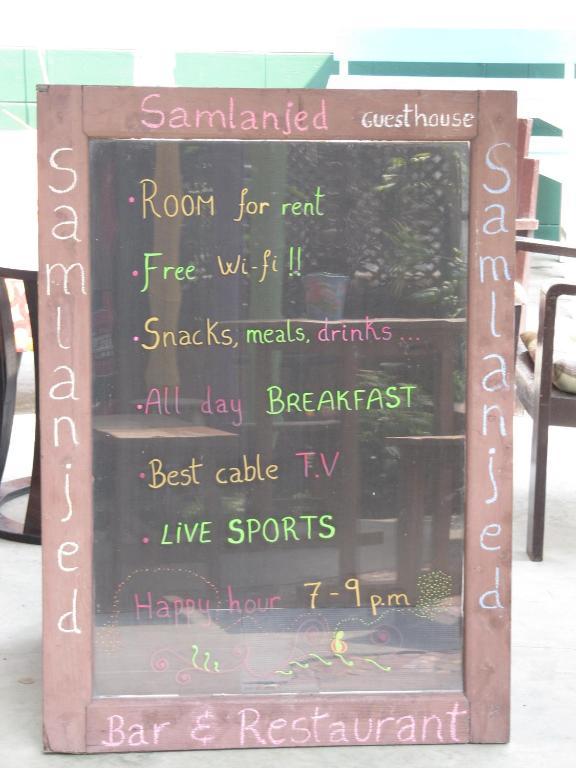 Samlanjed Guesthouse
Samlanjed
• Room for rent
• Free Wi-fi !!
• Snacks, meals, drinks ...
• All day BREAKFAST
• Best cable T.V
• LiVE SPORTS
Happy hour 7-9 p.m
Samlanjed
Bar & Restaurant